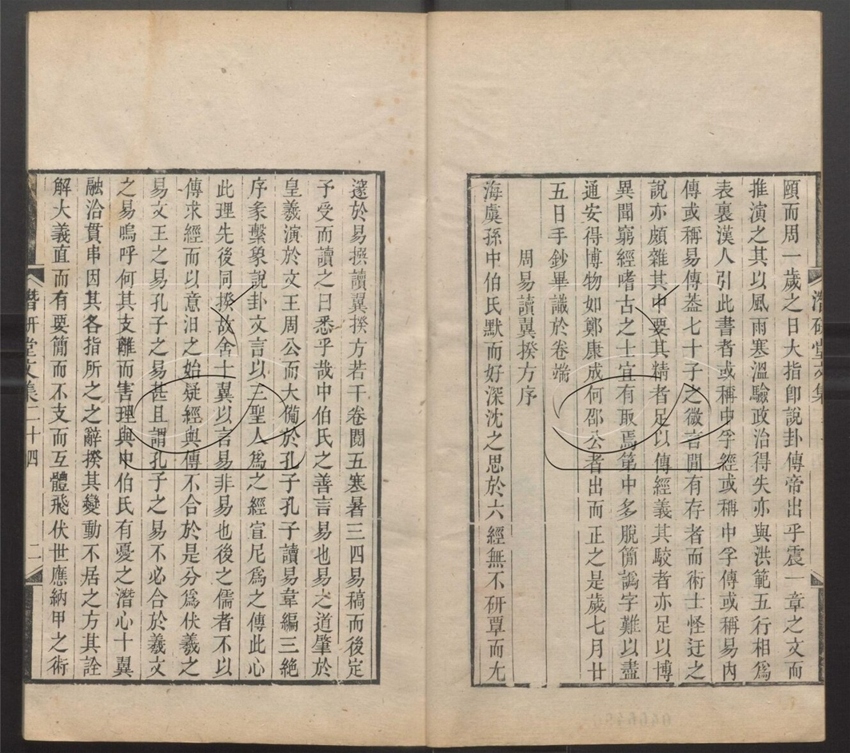 頤而周一歲之日大指卽說卦傳帝出乎震一章之文而
推演之其以風雨寒溫驗政治得失亦與洪範五行相爲
表裏漢人引此書者或稱中孚經或稱中孚傳或稱易內
傳或稱易傳葢七十子之微言閒有存者而術士怪迂之
說亦頗雜其中要其精者足以傳經義其駁者亦足以博
異聞窮經嗜古之士宜有取焉第中多脫簡譌字難以盡
通安得博物如鄭康成何邵公者出而正之是歲七月廿
五日手鈔畢識於卷端
周易讀翼揆方序
海虞孫中伯氏默而好深沈之思於六經無不研覃而尢
邃於易撰讀翼揆方若干卷閱五寒暑三四易稿而後定
予受而讀之曰悉乎哉中伯氏之善言易也易之道肇於
皇羲演於文王周公而大備於孔子孔子讀易韋編三絶
序彖繫象說卦文言以三聖人爲之經宣尼爲之傳此心
此理先後同揆故舍十翼以言易非易也後之儒者不以
傳求經而以意汨之始疑經與傳不合於是分爲伏羲之
易文王之易孔子之易甚且謂孔子之易不必合於羲文
之易嗚呼何其支離而害理與中伯氏有憂之潛心十翼
融洽貫串因其各指所之之辭揆其變動不居之方其詮
解大義直而有要簡而不支而互體飛伏世應納甲之術
潛研堂文集二十四
二